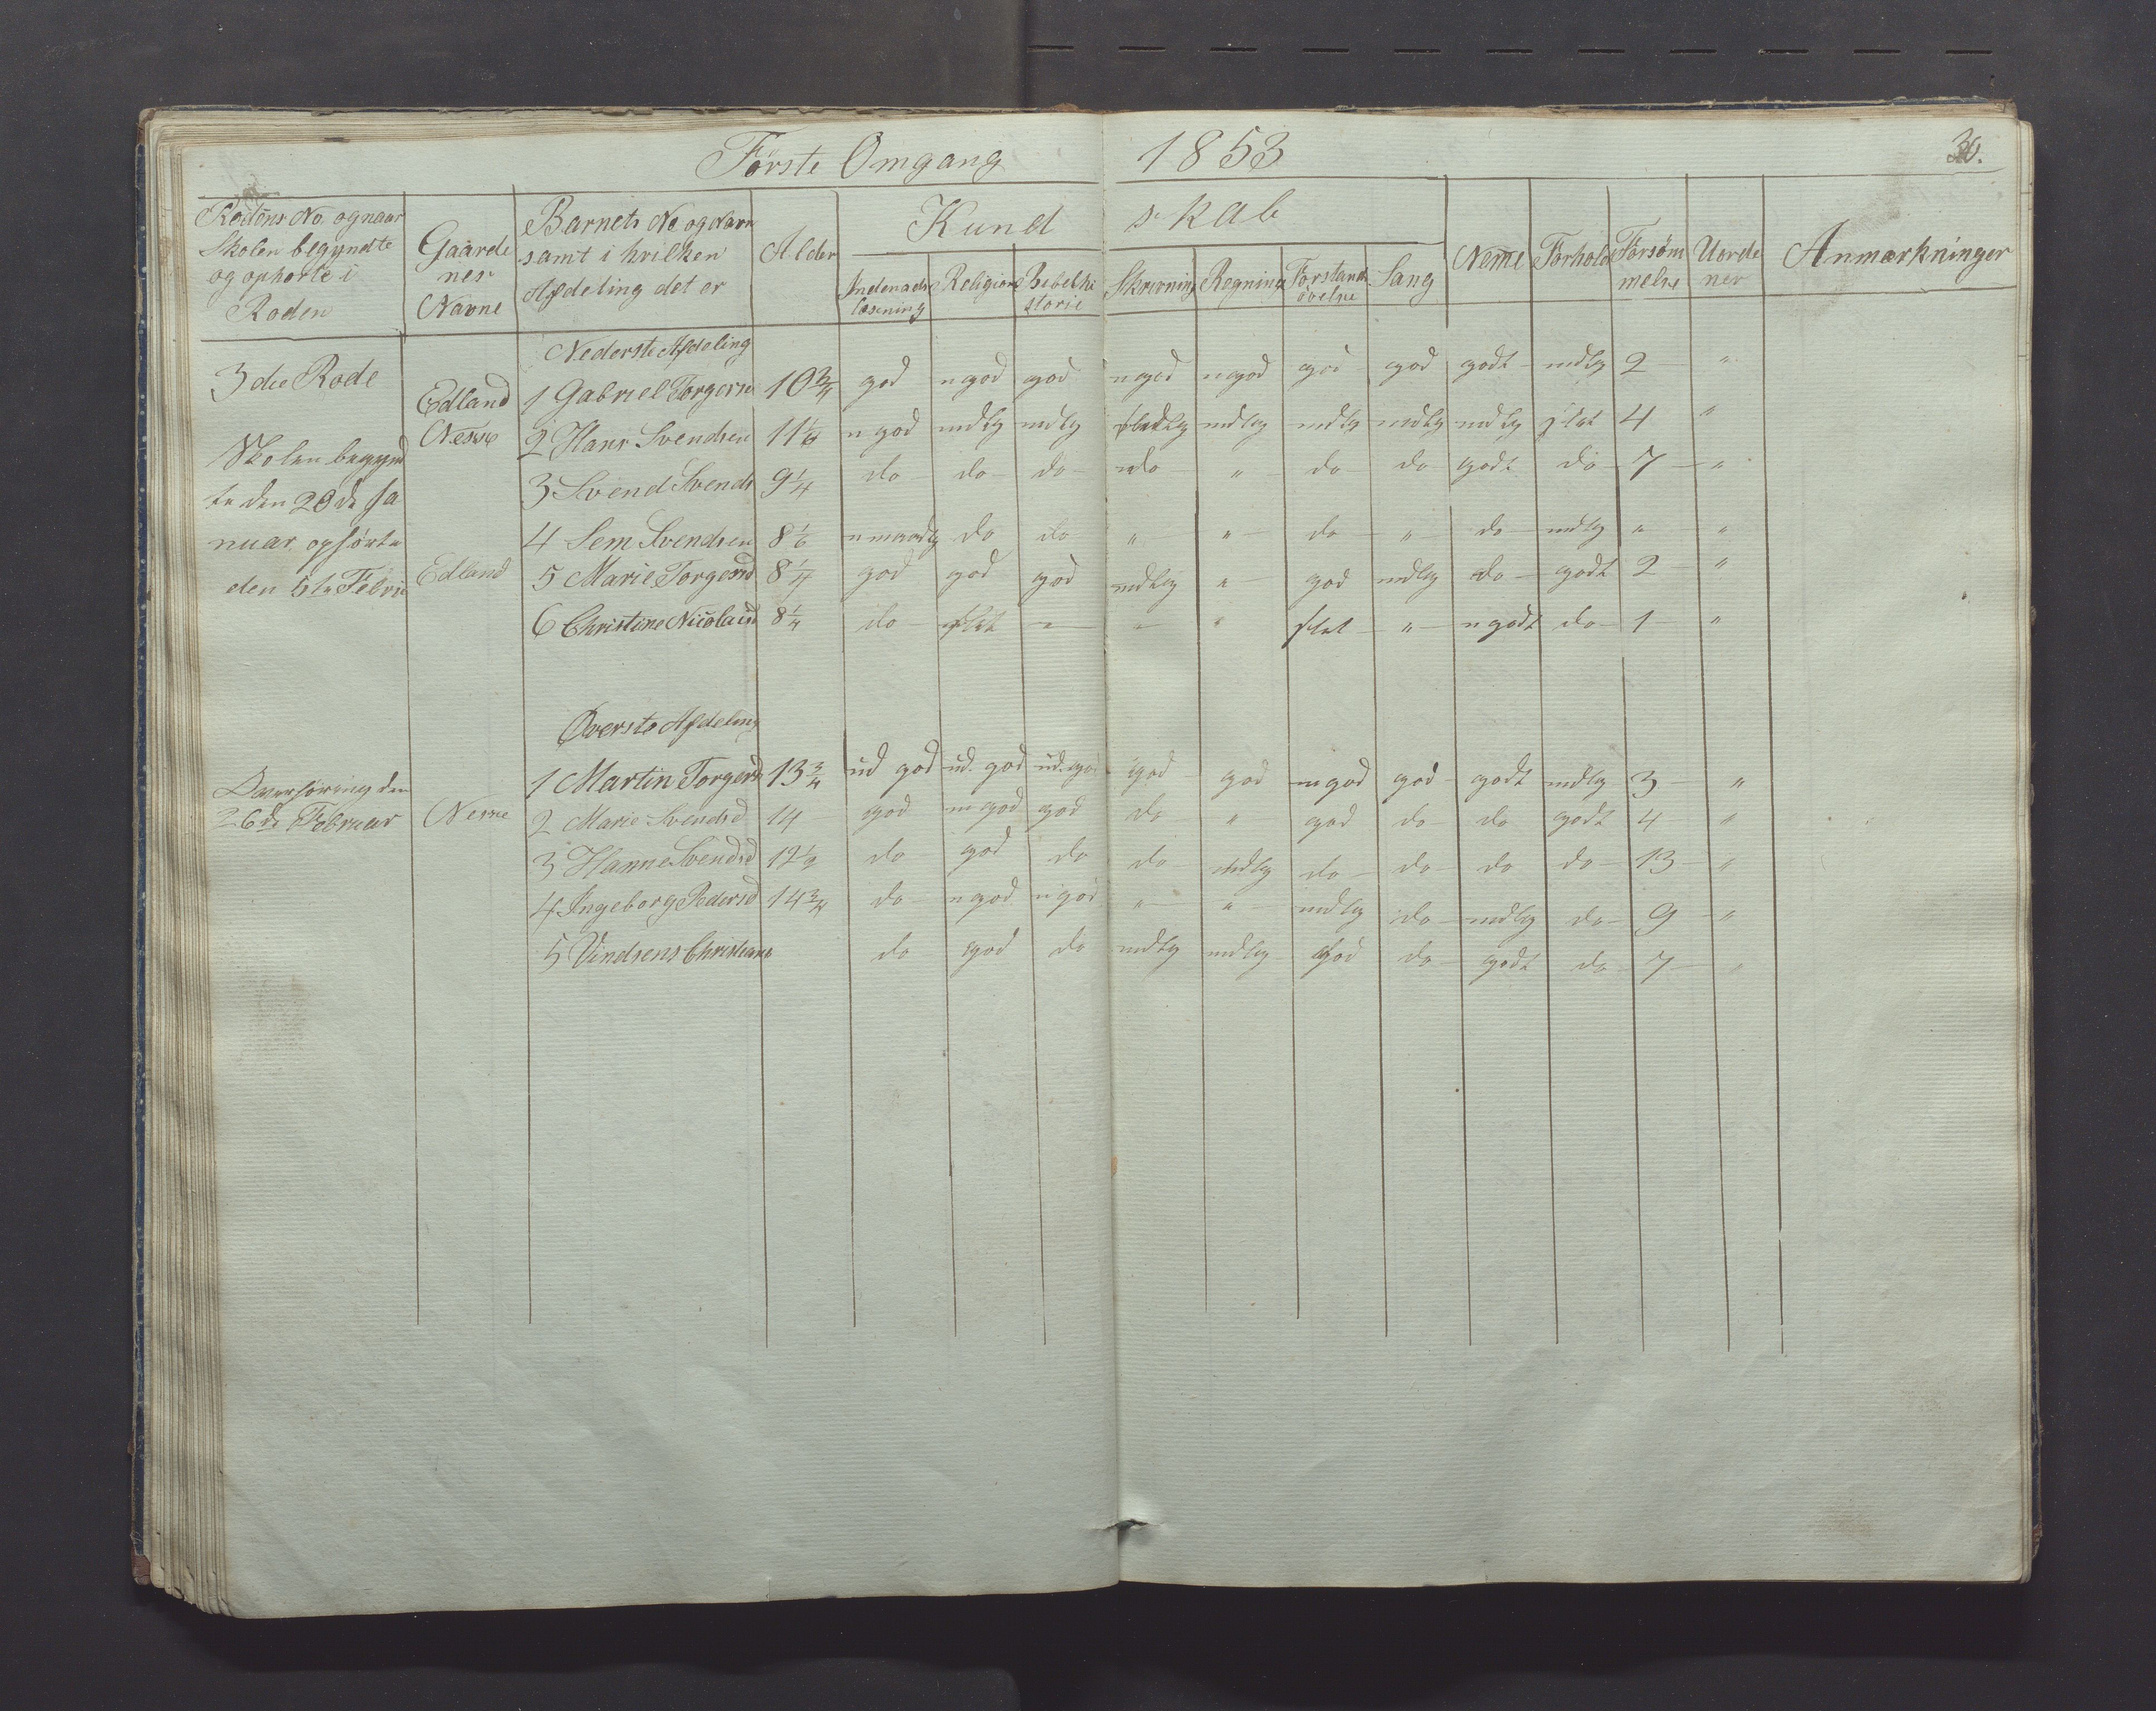 Første Omgang 1853 30.
Rodens No. og naar
Skolen begyndte
og ophørte i
Roden
Gaarde
nes
Navne
Barnets No og Navn
samt i hvilken
Afdeling det er
Alder
Kundskab
Indenads
læsning
Religion
Bibelhi
storie
Skrivning
Regning
Forstands
øvelse
Sang
Nemme
Forhold
Forsøm
melse
Uorde
ner
Anmærkninger
Nederste Afdeling
3die Rode Edland 1 Gabriel Torgers 10 3/4 god n god god n god n god god god godt mdlg 2 "
Nesse 2 Hans Svendsen 11 n god mdlg mdlg mdlg mdlg mdlg mdlg slet 4 "
3 Svend Svends 9 1/4 do do do do " do do godt do 7 "
4 Sem Svendsen 8 do do " " do " do mdlg " "
Edland 5 Marie Torgersd 8 1/4 god god god mdlg " god mdlg do godt 2 "
6 Christine Nicolaisd 8 1/4 do slet " " " slet " n godt do 1 "
Skolen begynd
te den 20de Ja
nuar ophørte
den 5te Febru
Øverste Afdeling
1 Martin Torgers 13 3/4 ud god ud. god ud. god god god m god god godt mdlg 3 "
Nesse 2 Marie Svendsd 14 god m god god do " god do do godt 4 "
3 Hanne Svendsd 12 1/2 do god do do mdlg do do do do 13 "
4 Ingeborg Pedersd 14 3/4 do n god n god " " mdlg do mdlg do 9 "
5 Vindsens Christians do god do mdlg mdlg god do godt do 7 "
Overhøring den
26de Februar